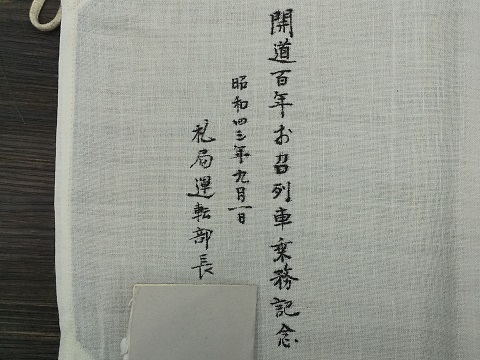 開道百年お召列車乗務記念
昭和四三年九月一日
札局運転部長